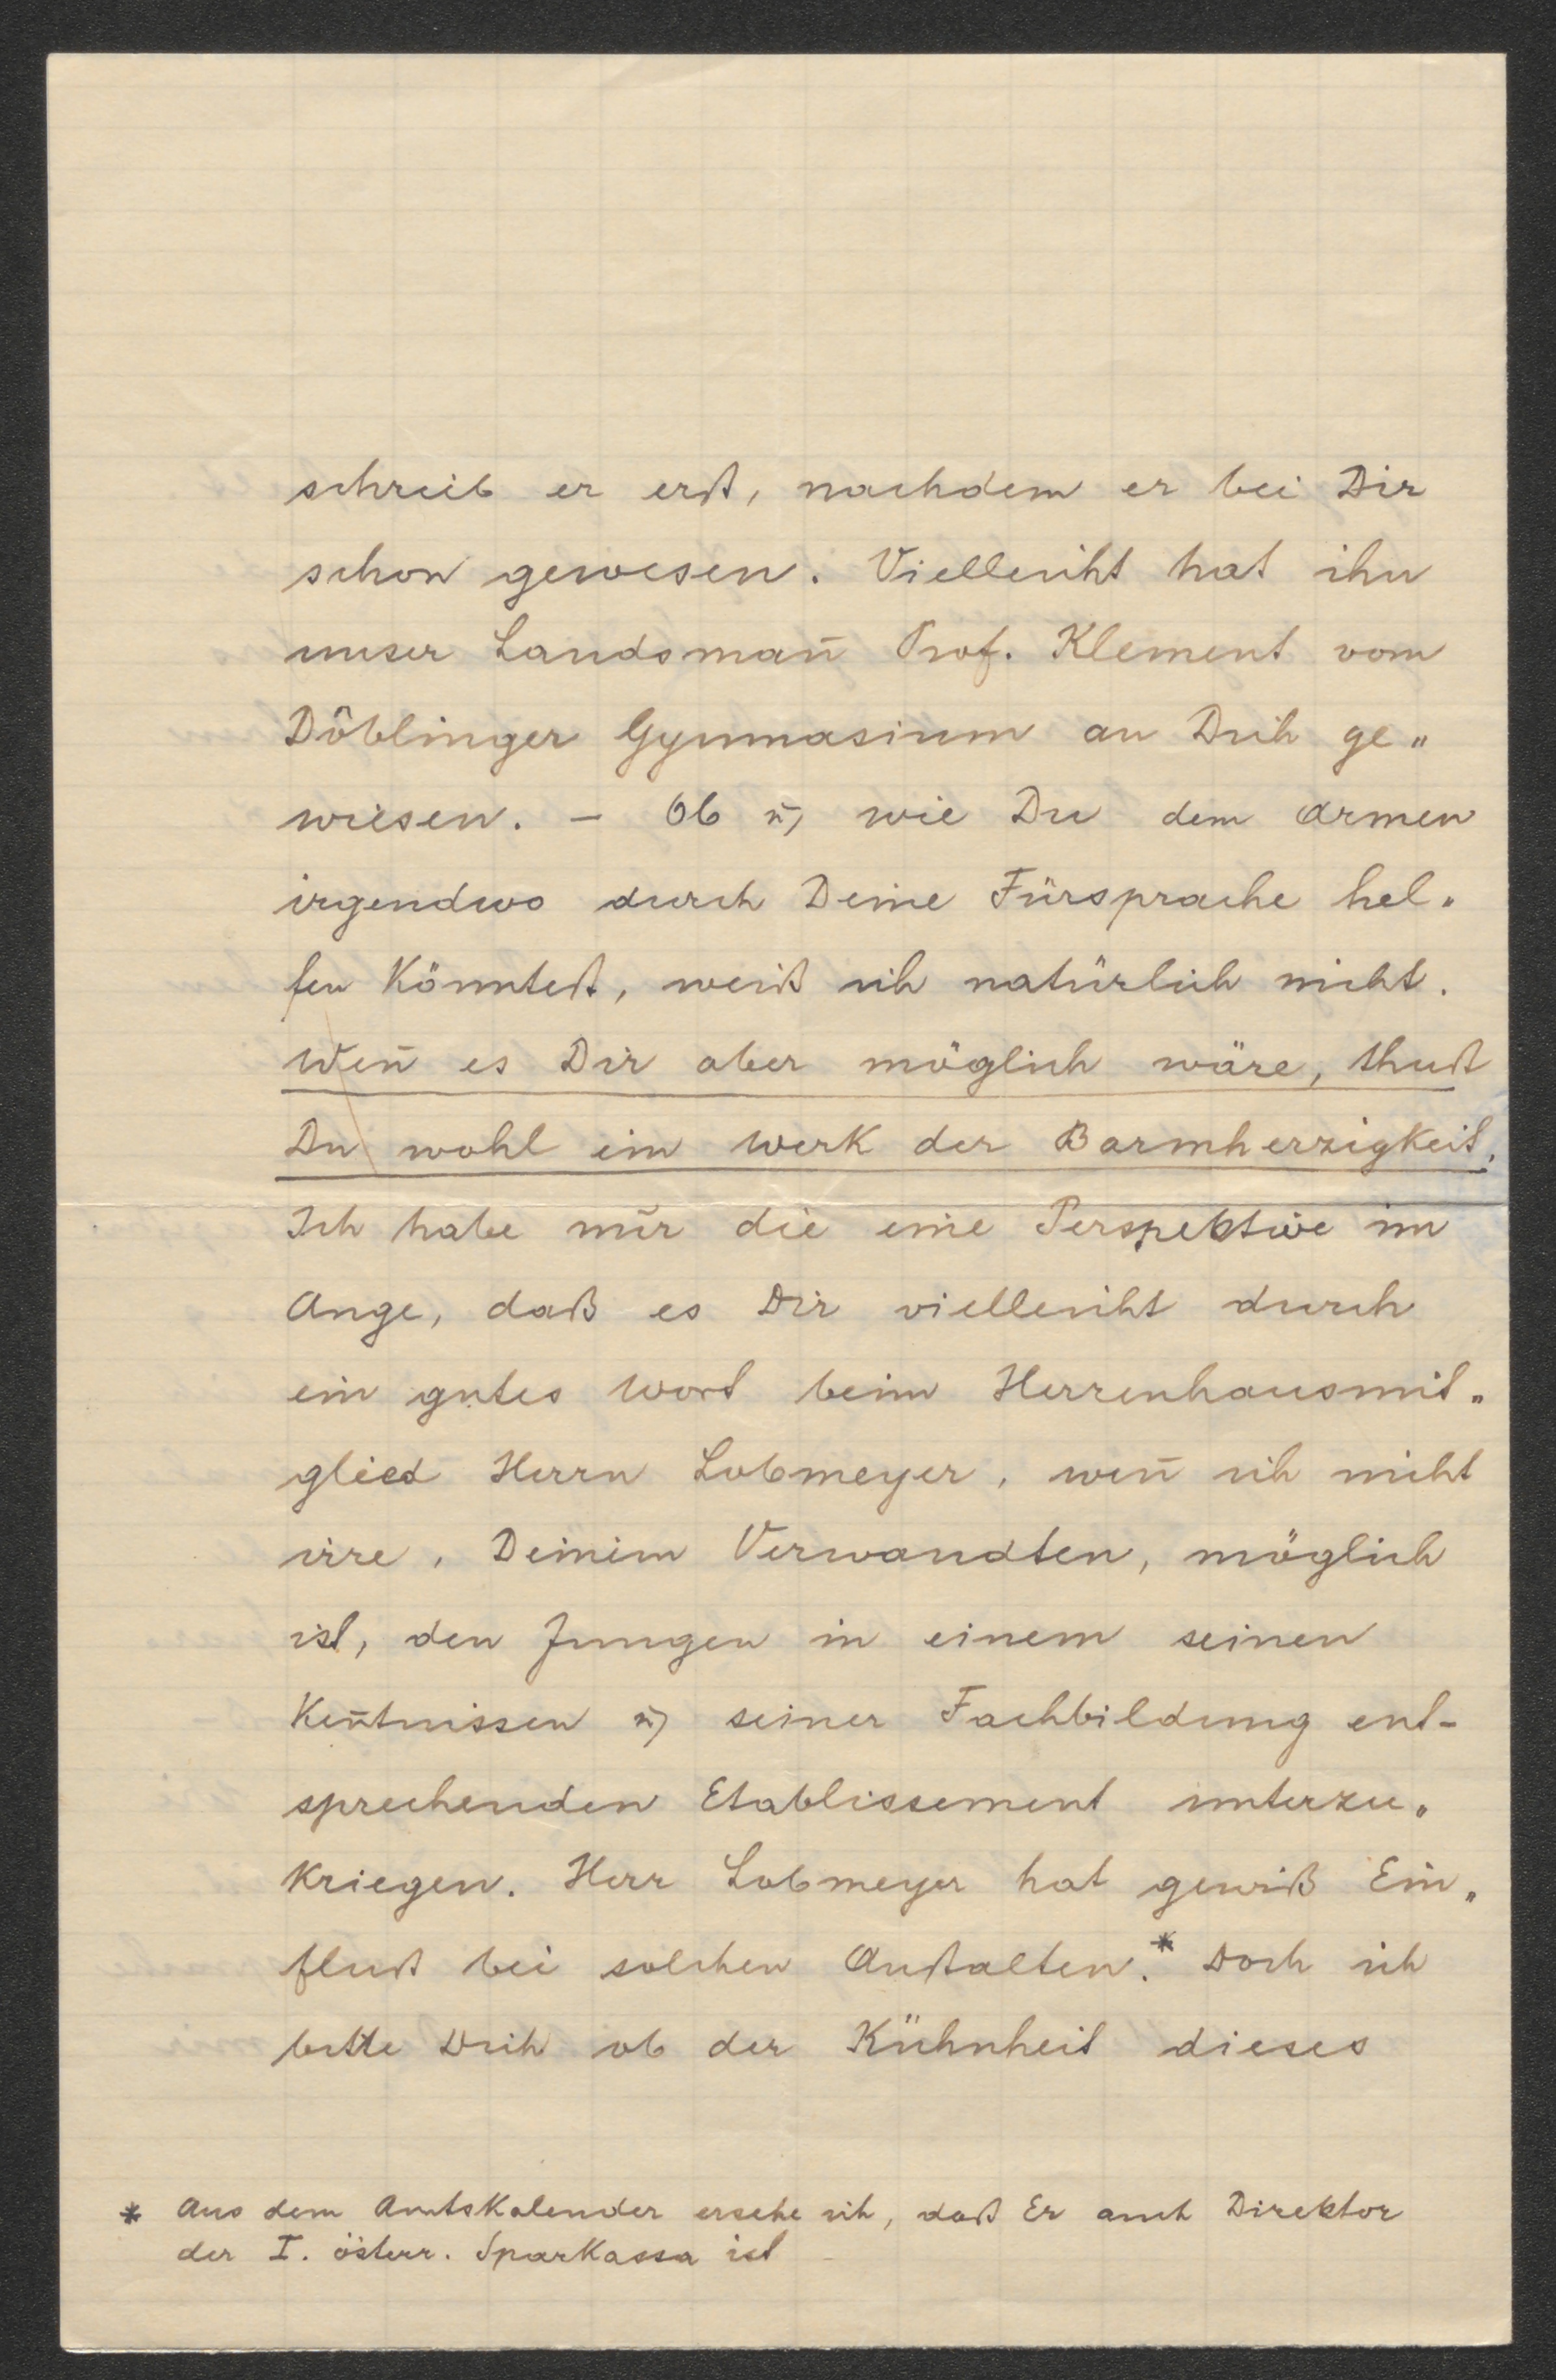 schrieb er erst, nachdem er bei Dir
schon gewesen. Vielleicht hat ihn
unser Landsman̄ Prof. Klement vom
Döblinger Gymnasium an Dich ge„
wiesen. – Ob ū, wie Du dem Armen
irgendwo durch Deine Fürsprache hel„
fen könntest, weiß ich natürlich nicht.
Wen̄ es Dir aber möglich wäre, thust
Du wohl ein Werk der Barmherzigkeit.
Ich habe nur die eine Perspektive im
Auge, daß es Dir vielleicht durch
ein gutes Wort beim Herrenhausmit„
glied Herrn Lobmeyer, wen̄ ich nicht
irre, Deinem Verwandten, möglich
ist, den Jungen in einem seinen
Ken̄tnissen ū, seiner Fachbildung ent-
sprechenden Etablissement unterzu„
kriegen. Herr Lobmeyer hat gewiß Ein„
fluß bei solchen Anstalten.* Doch ich
bitte Dich ob der Kühnheit dieses
* Aus dem Amtskalender ersehe ich, daß Er auch Direktor
der I. österr. Sparkassa ist